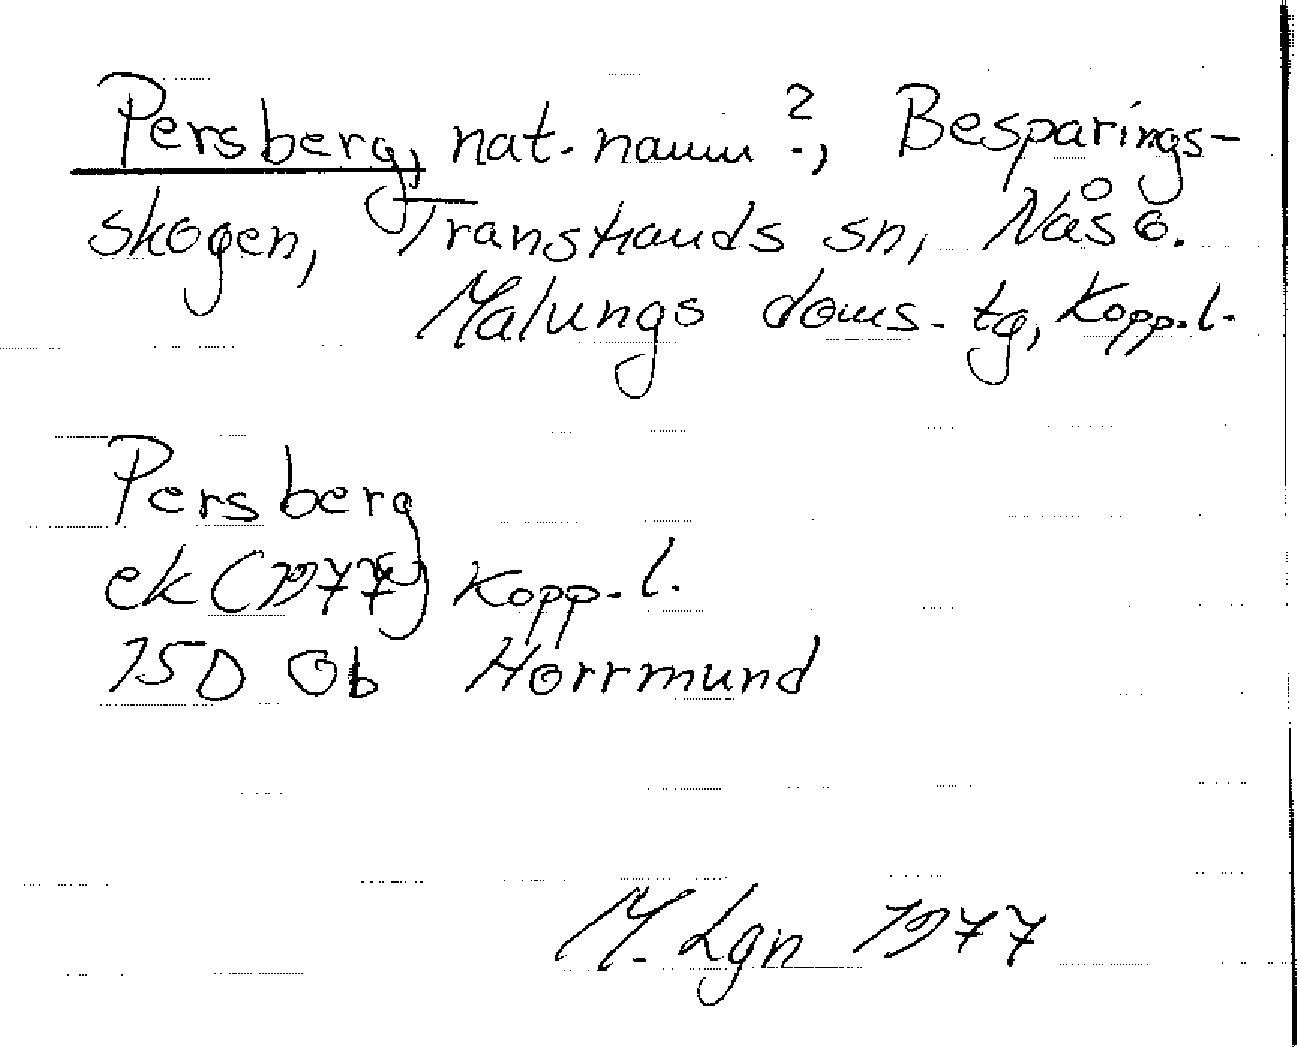 Persberg, nat.namn?, Besparings-
skogen, Transtrands sn, Nås o.
Malungs doms.tg, Kopp.l.
Persberg
ek (1977) Kopp.l.
15D Ob Horrmund
M. Lgn 1977